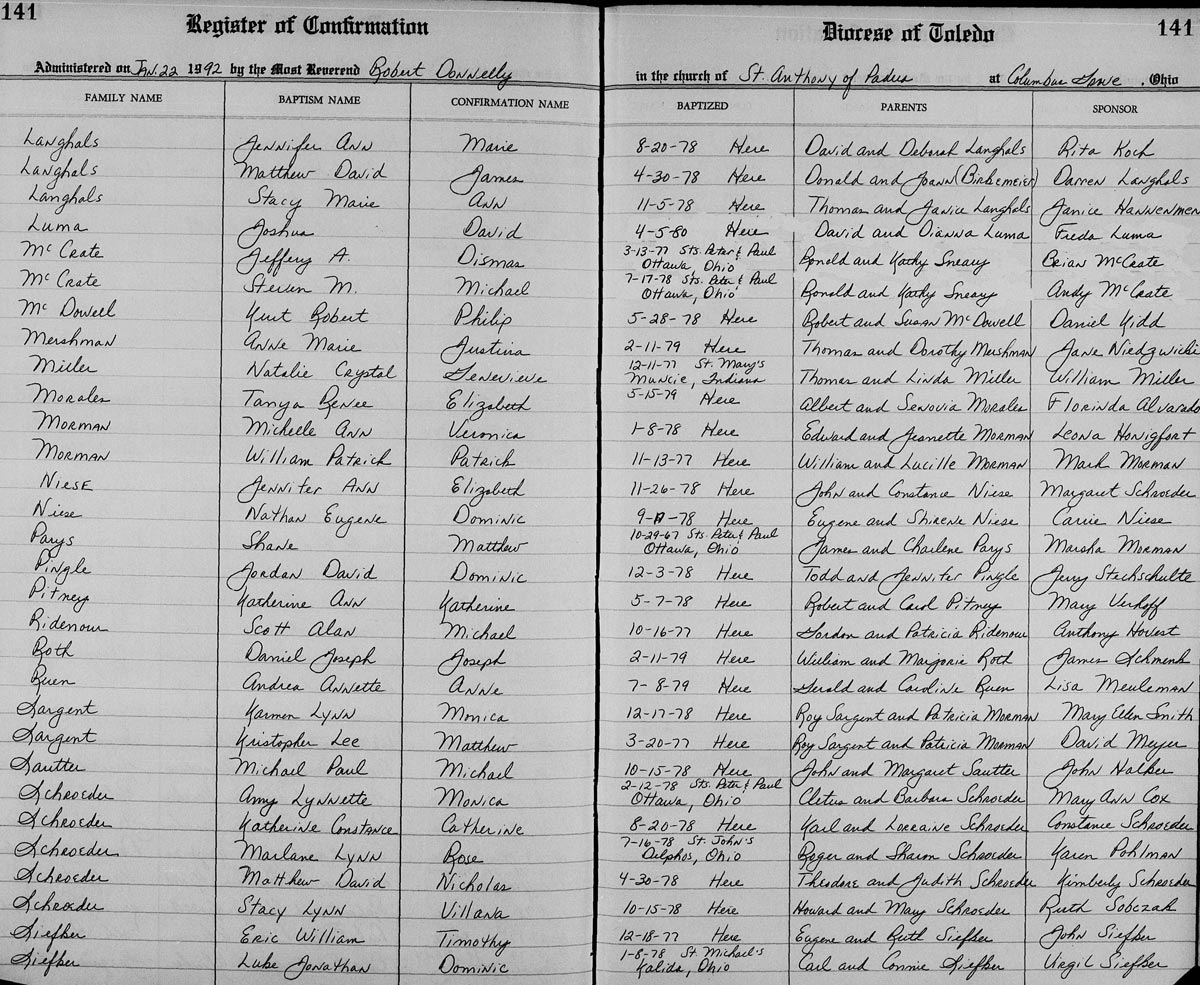 141
Register of Confirmation
Diocese of Toledo
141
Administered on Jan. 22 1992 by the Most Reverend Robert Donnelly in the church of St. Anthony of Padua at Columbus Grove, Ohio
FAMILY NAME BAPTISM NAME CONFIRMATION NAME BAPTIZED PARENTS SPONSOR
Langhals Jennifer Ann Marie 8-20-78 Here David and Deborah Langhals Rita Koch
Langhals Matthew David James 4-30-78 Here Donald and Joann (Birkemeier) Darren Langhals
Langhals Stacy Marie Ann 11-5-78 Here Thomas and Janice Langhals Janice Hannenmen
Luma Joshua David 4-5-80 Here David and Dianna Luma Freda Luma
McCrate Jeffery A. Dismas 3-13-77 Sts. Peter & Paul Ottawa, Ohio Ronald and Kathy Sneary Brian McCrate
McCrate Steven M. Michael 7-17-78 Sts. Peter & Paul Ottawa, Ohio Ronald and Kathy Sneary Andy McCrate
McDowell Kurt Robert Philip 5-28-78 Here Robert and Susan McDowell Daniel Kidd
Mershman Anne Marie Justina 2-11-79 Here Thomas and Dorothy Mershman Jane Niedzwicki
Miller Natalie Crystal Genevieve 12-11-77 St. Mary's Muncie, Indiana Thomas and Linda Miller William Miller
Morales Tanya Renee Elizabeth 5-15-79 Here Albert and Senovia Morales Florinda Alvarado
Morman Michelle Ann Veronica 1-8-78 Here Edward and Jeanette Morman Leona Honigfort
Morman William Patrick Patrick 11-13-77 Here William and Lucille Morman Mark Morman
Niese Jennifer Ann Elizabeth 11-26-78 Here John and Constance Niese Margaret Schroeder
Niese Nathan Eugene Dominic 9- -78 Here Eugene and Shirene Niese Carrie Niese
Parys Shane Matthew 10-29-67 Sts. Peter & Paul Ottawa, Ohio James and Charlene Parys Marsha Morman
Pingle Jordan David Dominic 12-3-78 Here Todd and Jennifer Pingle Jerry Stechschulte
Pitney Katherine Ann Katherine 5-7-78 Here Robert and Carol Pitney Mary Verhoff
Ridenour Scott Alan Michael 10-16-77 Here Gordon and Patricia Ridenour Anthony Hovest
Roth Daniel Joseph Joseph 2-11-79 Here William and Marjorie Roth James Schmenk
Ruen Andrea Annette Anne 7-8-79 Here Gerald and Caroline Ruen Lisa Meuleman
Sargent Karmen Lynn Monica 12-17-78 Here Roy Sargent and Patricia Morman Mary Ellen Smith
Sargent Kristopher Lee Matthew 3-20-77 Here Roy Sargent and Patricia Morman David Meyer
Sautter Michael Paul Michael 10-15-78 Here John and Margaret Sautter John Halker
Schroeder Amy Lynnette Monica 2-12-78 Sts. Peter & Paul Ottawa, Ohio Cletus and Barbara Schroeder Mary Ann Cox
Schroeder Katherine Constance Catherine 8-20-78 Here Karl and Lorraine Schroeder Constance Schroeder
Schroeder Marlane Lynn Rose 7-16-78 St. John's Delphos, Ohio Roger and Sharon Schroeder Karen Pohlman
Schroeder Matthew David Nicholas 4-30-78 Here Theodore and Judith Schroeder Kimberly Schroeder
Schroeder Stacy Lynn Villana 10-15-78 Here Howard and Mary Schroeder Ruth Sobczak
Siefker Eric William Timothy 12-18-77 Here Eugene and Ruth Siefker John Siefker
Siefker Luke Jonathan Dominic 1-8-78 St. Michael's Kalida, Ohio Carl and Connie Siefker Virgil Siefker